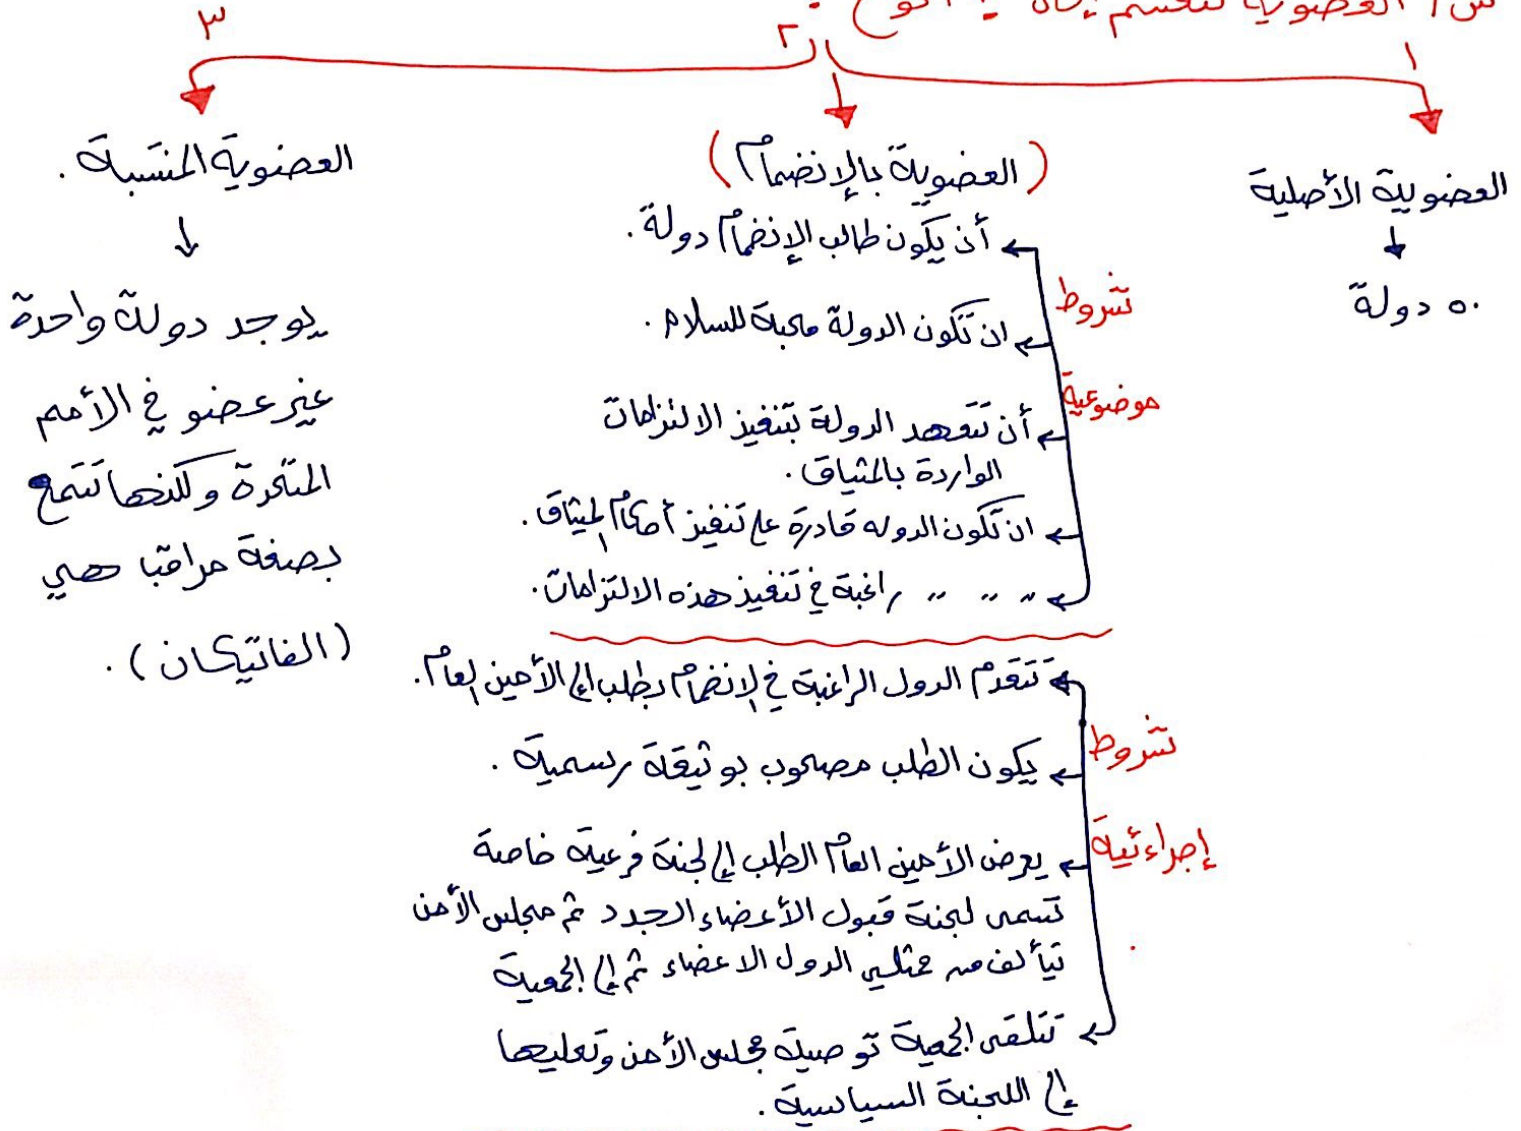 س١/ العضوية تنقسم إلى
١
٢
٣
العضوية الأصلية
٥٠ دولة
(العضوية بالإنضمام)
شروط
موضوعية
أن يكون طالب الإنضمام دولة.
ان تكون الدولة محبة للسلام.
أن تتعهد الدولة بتنفيذ الالتزامات
الواردة بالمثياق.
ان تكون الدوله قادرة على تنفيذ أحكام الميثاق.
〃 〃 〃 راغبة في تنفيذ هذه الالتزامات.
شروط
إجرائية
تتقدم الدول الراغبة في الإنضمام بطلب إلى الأمين العام.
يكون الطلب مصحوب بوثيقة رسمية.
يعرض الأمين العام الطلب إلى لجنة فرعية خاصة
تسمى لجنة قبول الأعضاء الجدد ثم مجلس الأمن
تتألف من ممثلي الدول الاعضاء ثم إلى الجمعية
تتلقى الجمعية توصية مجلس الأمن وتعليها
إلى اللجنة السياسية.
العضوية المنتسبة.
يوجد دولة واحدة
غير عضو في الأمم
المتحدة ولكنها تتمتع
بصفة مراقبا هي
(الفاتيكان).